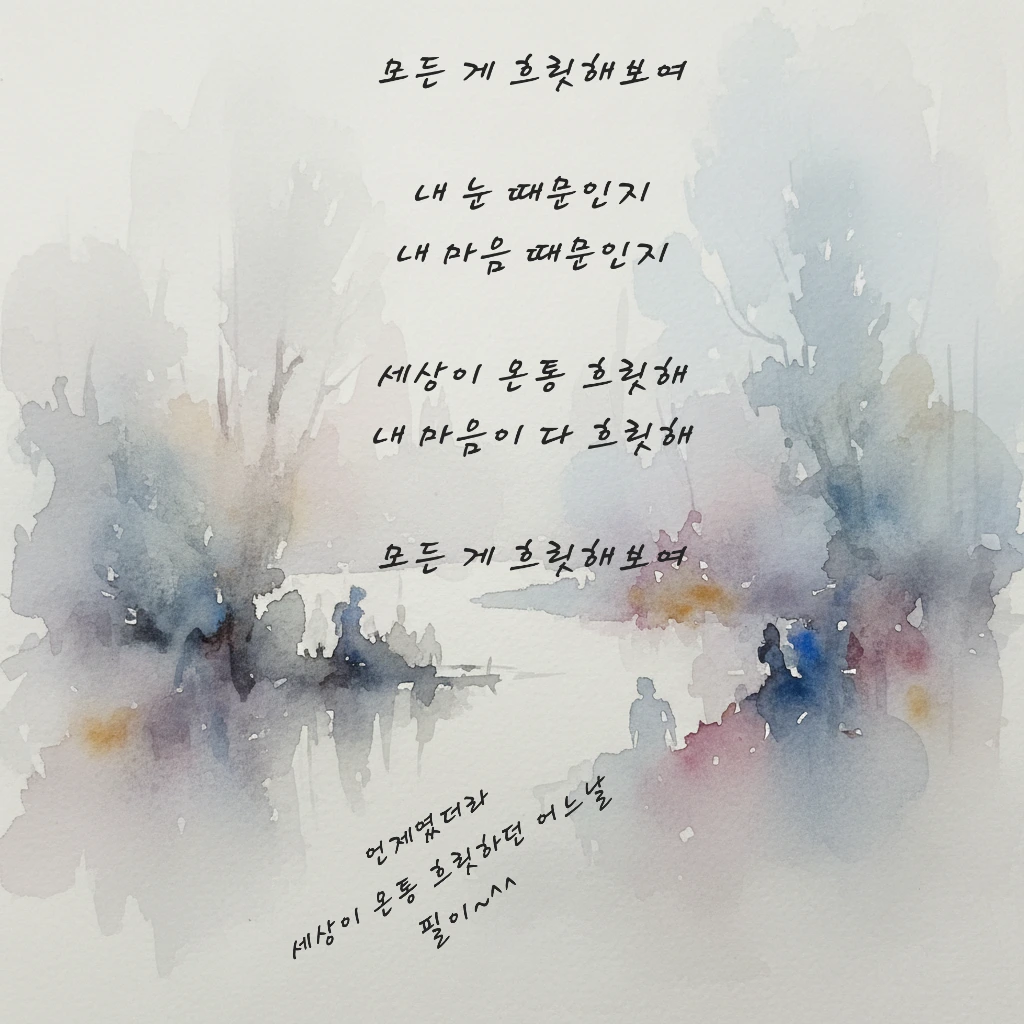 모든 게 흐릿해보여
내 눈 때문인지
내 마음 때문인지
세상이 온통 흐릿해
내 마음이 다 흐릿해
모든 게 흐릿해보여
언제였더라
세상이 온통 흐릿하던 어느날
필이~^^